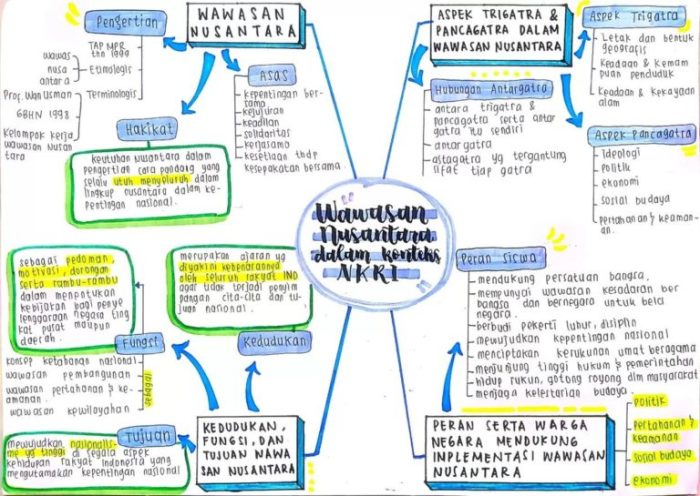 Wawasan
Nusantara
dalam konteks
NKRI
WAWASAN
NUSANTARA
Pengertian
TAP MPR
thn 1999
wawas
nusa
antara
Etimologis
Prof. Wan Usman
GBHN 1998
Kelompok kerja
wawasan Nusan
tara
Terminologis
Asas
kepentingan ber-
sama
kejujuran
keadilan
solidaritas
kerjasama
kesetiaan thdp
kesepakatan bersama
Hakikat
keutuhan Nusantara dalam
pengertian cara pandang yang
selalu utuh menyeluruh dalam
lingkup nusantara dalam ke-
pentingan nasional.
ASPEK TRIGATRA &
PANCAGATRA DALAM
WAWASAN NUSANTARA
Aspek Trigatra
Letak dan bentuk
geografis
Keadaan & Kemam
puan penduduk
Keadaan & Kekayaan
alam
Hubungan Antargatra
antara trigatra &
pancagatra serta antar
gatra itu sendiri
antar gatra
astagatra yg tergantung
sifat tiap gatra
Aspek Pancagatra
ideologi
politik
ekonomi
sosial budaya
Pertahanan & keaman-
an.
KEDUDUKAN,
FUNGSI, DAN
TUJUAN WAWA
SAN NUSANTARA
Kedudukan
merupakan ajaran yg
diyakini kebenarannya
oleh seluruh rakyat IND
agar tidak terjadi penyim
pangan cita-cita dan tu-
juan nasional.
Fungsi
sebagai pedoman,
motivasi, dorongan
serta rambu-rambu
dalam menentukan
kebijakan bagi penye
lenggaraan negara ting
kat pusat maupun
daerah.
konsep ketahanan nasional
wawasan pembangunan
wawasan pertahanan & ke-
amanan.
wawasan kewilayahan
sebagai
Tujuan
mewujudkan nasionalis-
me yg tinggi di segala aspek
kehidupan rakyat Indonesia yang
mengutamakan kepentingan nasional
Peran Siswa
mendukung persatuan bangsa,
mempunyai wawasan kesadaran ber
bangsa dan bernegara untuk bela
negara.
berbudi pekerti luhur, disiplin
mewujudkan kepentingan nasional
menciptakan kerukunan umat beragama
menjunjung tinggi hukum & pemerintahan
hidup rukun, gotong royong dlm masyarakat
menjaga kelestarian budaya.
PERAN SERTA WARGA
NEGARA MENDUKUNG
INPLEMENTASI WAWASAN
NUSANTARA
politik
pertahanan &
keamanan
sosial budaya
ekonomi